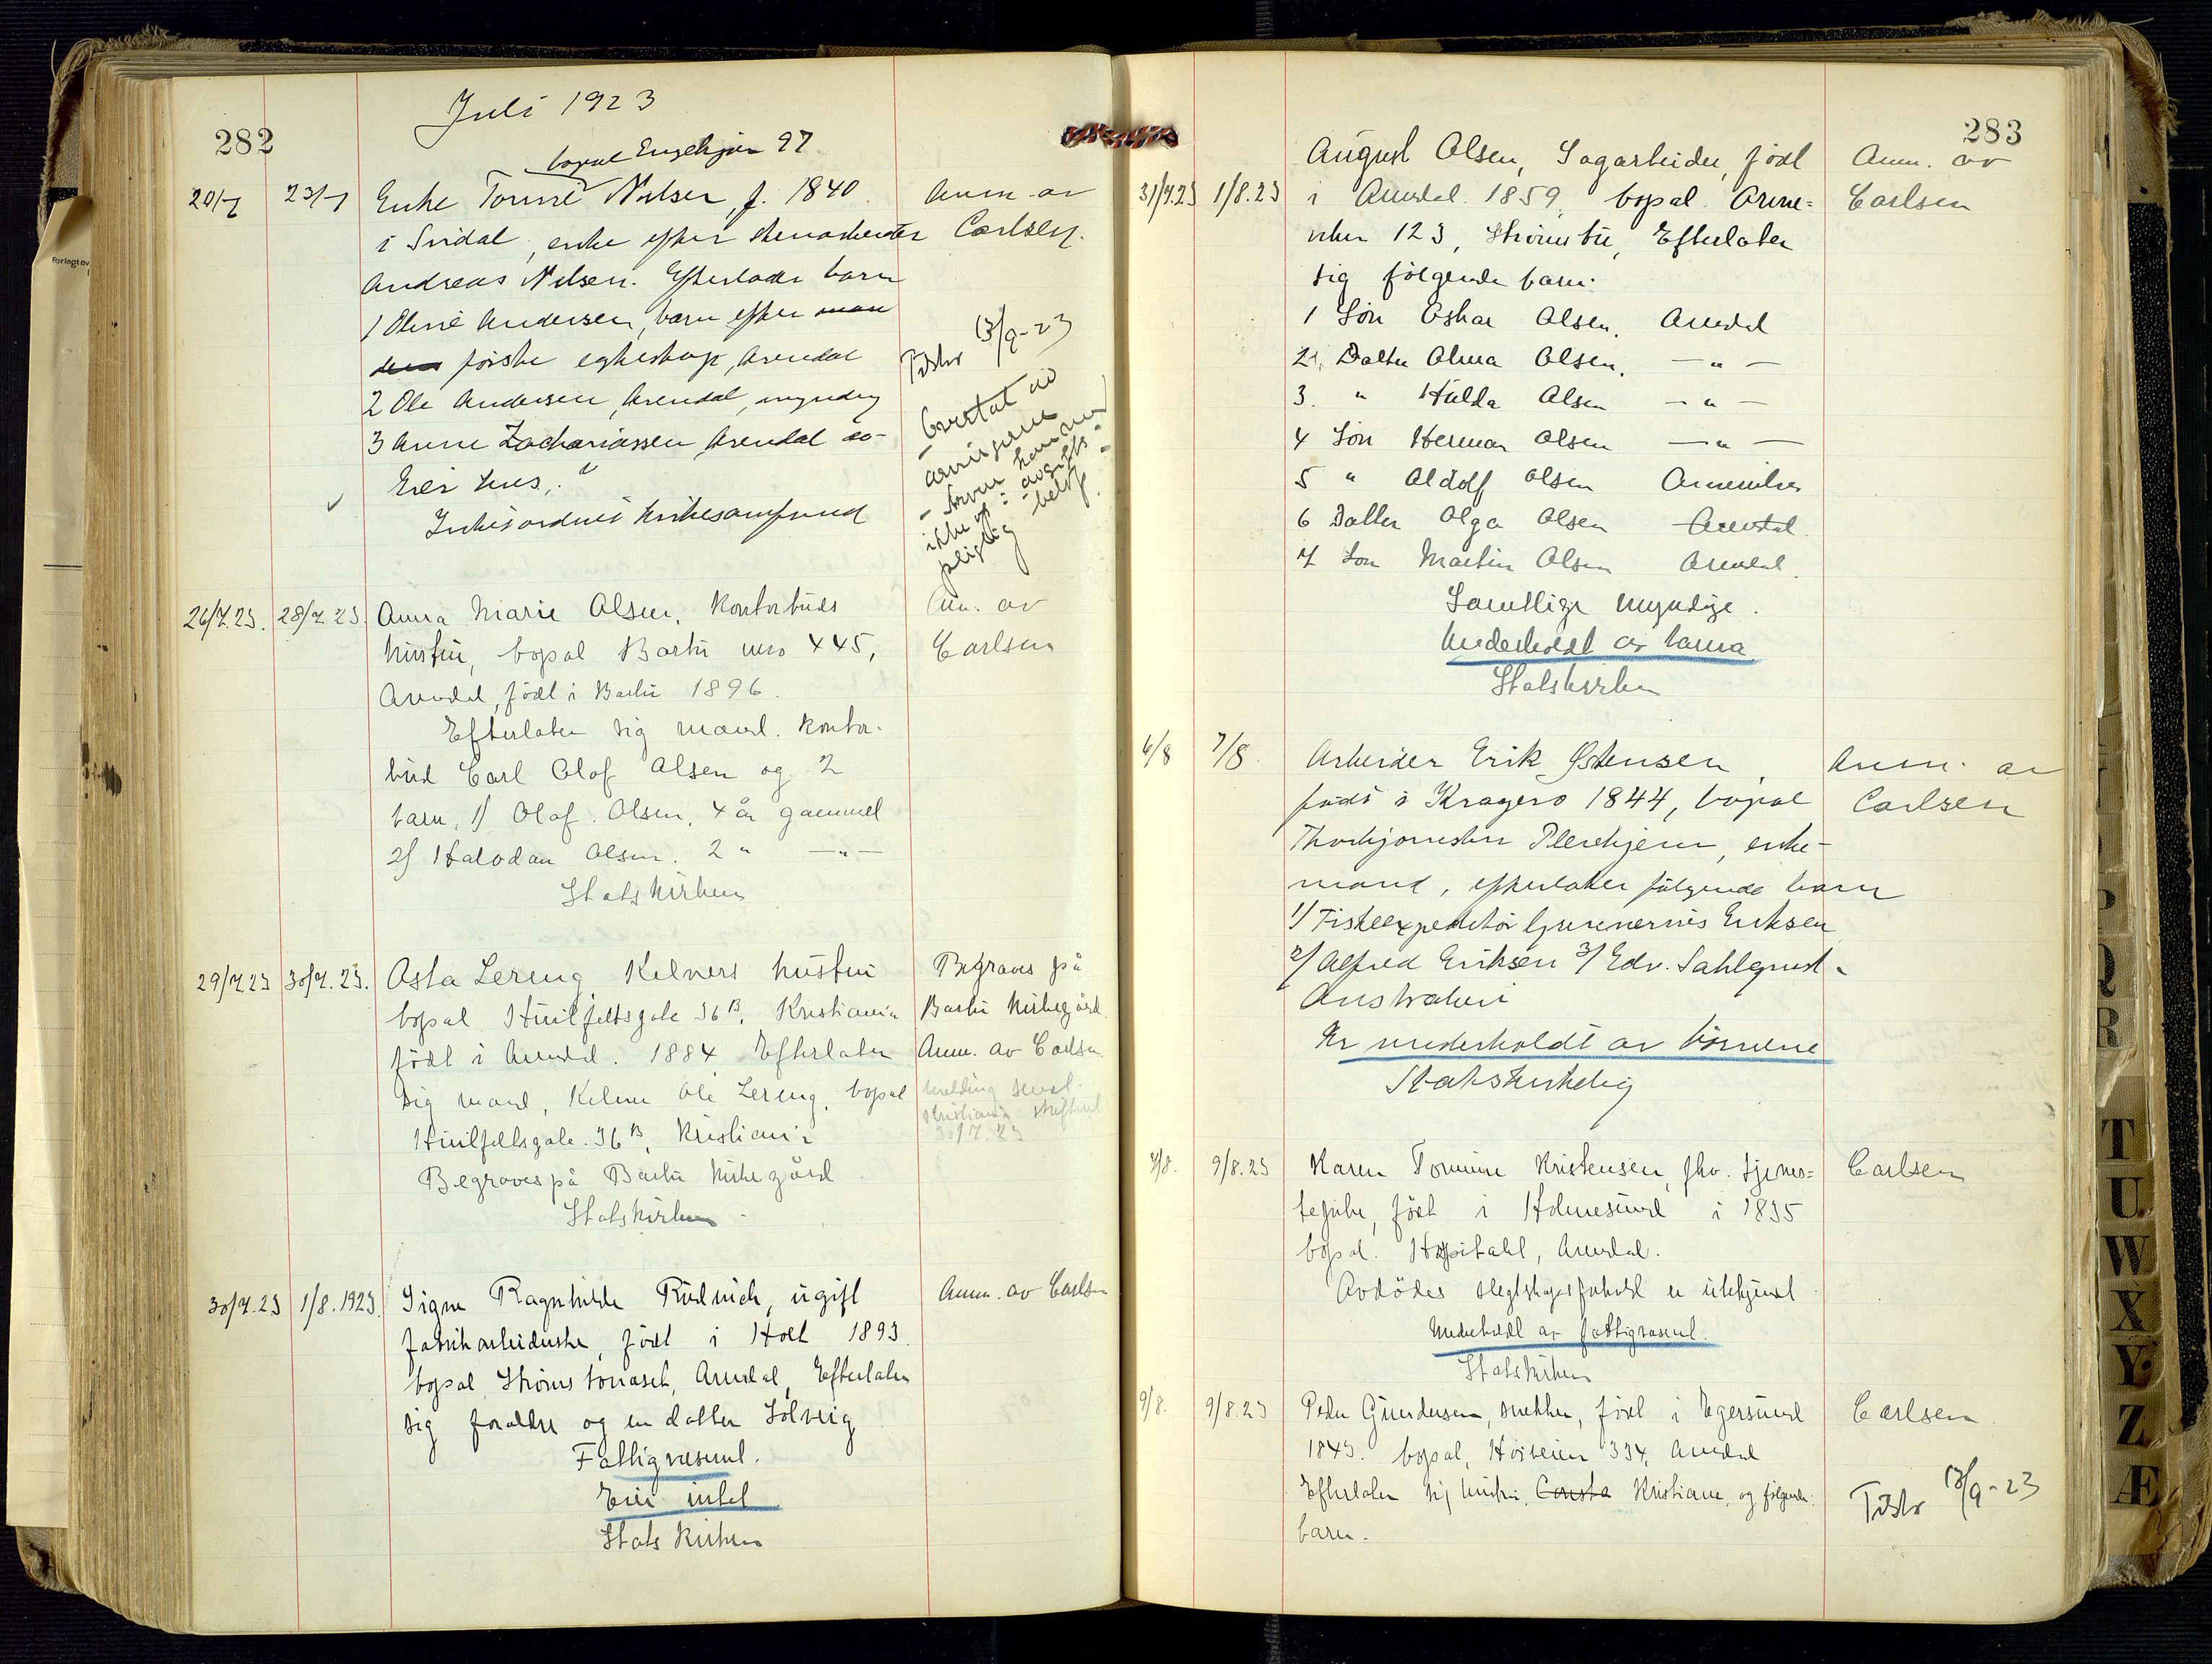 282
Juli 1923
bopæl Engekjær 97
20/7 23/7 Enke Tomine Nilsen, f. 1840. Anm. av
i Sridal, enke efter stenarbeider Carlsen.
Andreas Nilsen. Efterlader barn
1 Oline Andersen, barn efter man
den første egteskap, Arendal
2 Ole Andersen, Arendal, myndig
3 Anne Zachariassen Arendal do-
Eier hus,
Inkisordnes kirkesamfund
Tilstr 13/9-23
- Overtat av
arvingerne
- Arven kommer
ikke op i avgifts-
pligtig beløp.
26/7.23. 28/7 23. Anna Marie Olsen, Kontorbuds Anm. av
hustru, bopæl Barbu nro 445, Carlsen
Arendal, født i Barbu 1896.
Efterlater sig mand. Kontor-
bud Carl Olof Olsen og 2
barn, 1/ Olaf. Olsen, 4 år gammel
2/ Halvdan Olsen. 2 " —"—
Statskirken
29/7.23 30/7.23. Asta Lereng, Kelners hustru Begraves på
bopæl Huitfeltsgate 36 B, Kristiania Barbu Kirkegård.
født i Arendal. 1884 Efterlater Anm. av Carlsen
sig mand, Kelner Ole Lereng, bopæl melding sendt
Huitfeltsgate. 36 B, Kristiania Kristiania skifteret
30/7.23
Begraves på Barbu Kirkegård
Statskirken
30/7.23 1/8.1923. Signe Ragnhilde Rudnick, ugift Anm. av Carlsen
fabrikarbeiderske, født i Holt 1893
bopæl Strømstorraset, Arendal, Efterlater
sig forældre og en datter Solveig
Fattigvæsenet.
Eier intet
Stats Kirken
283
August Olsen, Sagarbeider, født Anm. av
31/7.23 1/8.23 i Arendal. 1859, bopæl Arne= Carlsen
viken 123, Strømsbu, Efterlater
sig følgende barn:
1 Søn Oskar Olsen, Arendal
2, Datter Olna Olsen, —"—
3. " Hulda Olsen —"—
4 Søn Herman Olsen —"—
5 " Aldolf Olsen Arneviken
6 Datter Olga Olsen Arendal.
7 Søn Martin Olsen Arendal.
Samtlige myndige.
Underholdt av barna
Statskirken
6/8 7/8. Arbeider Erik Østensen, Anm. av
født i Kragerø 1844, bopæl Carlsen
Thorbjørnsbu Plerekjern, enke-
mand, efterlater følgende barn
1/ Fiskeexpeditør Eriksen
2/ Alfred Eriksen 3/ Edv. Sahlqvist -
Australien
Er underholdt av børnene
Statskirkelig
8/8. 9/8.23 Karen Tomine Kristensen, fhv. tjenes= Carlsen
tepike, født i Holmesund i 1835
bopæl. Hospitalet, Arendal.
Avdødes slegtskapsforhold er ukjendt
Underholdt av fattigvæsenet.
Statskirken
9/8. 9/8.23 Peder Gundersen, snekker, født i Egersund Carlsen
1843. bopæl, Høiveien 334, Arendal
Efterlater sig hustru, Consta Kristiane, og følgende Tilstr 13/9-23
barn.
T
U
W
X
Y
Z
Æ